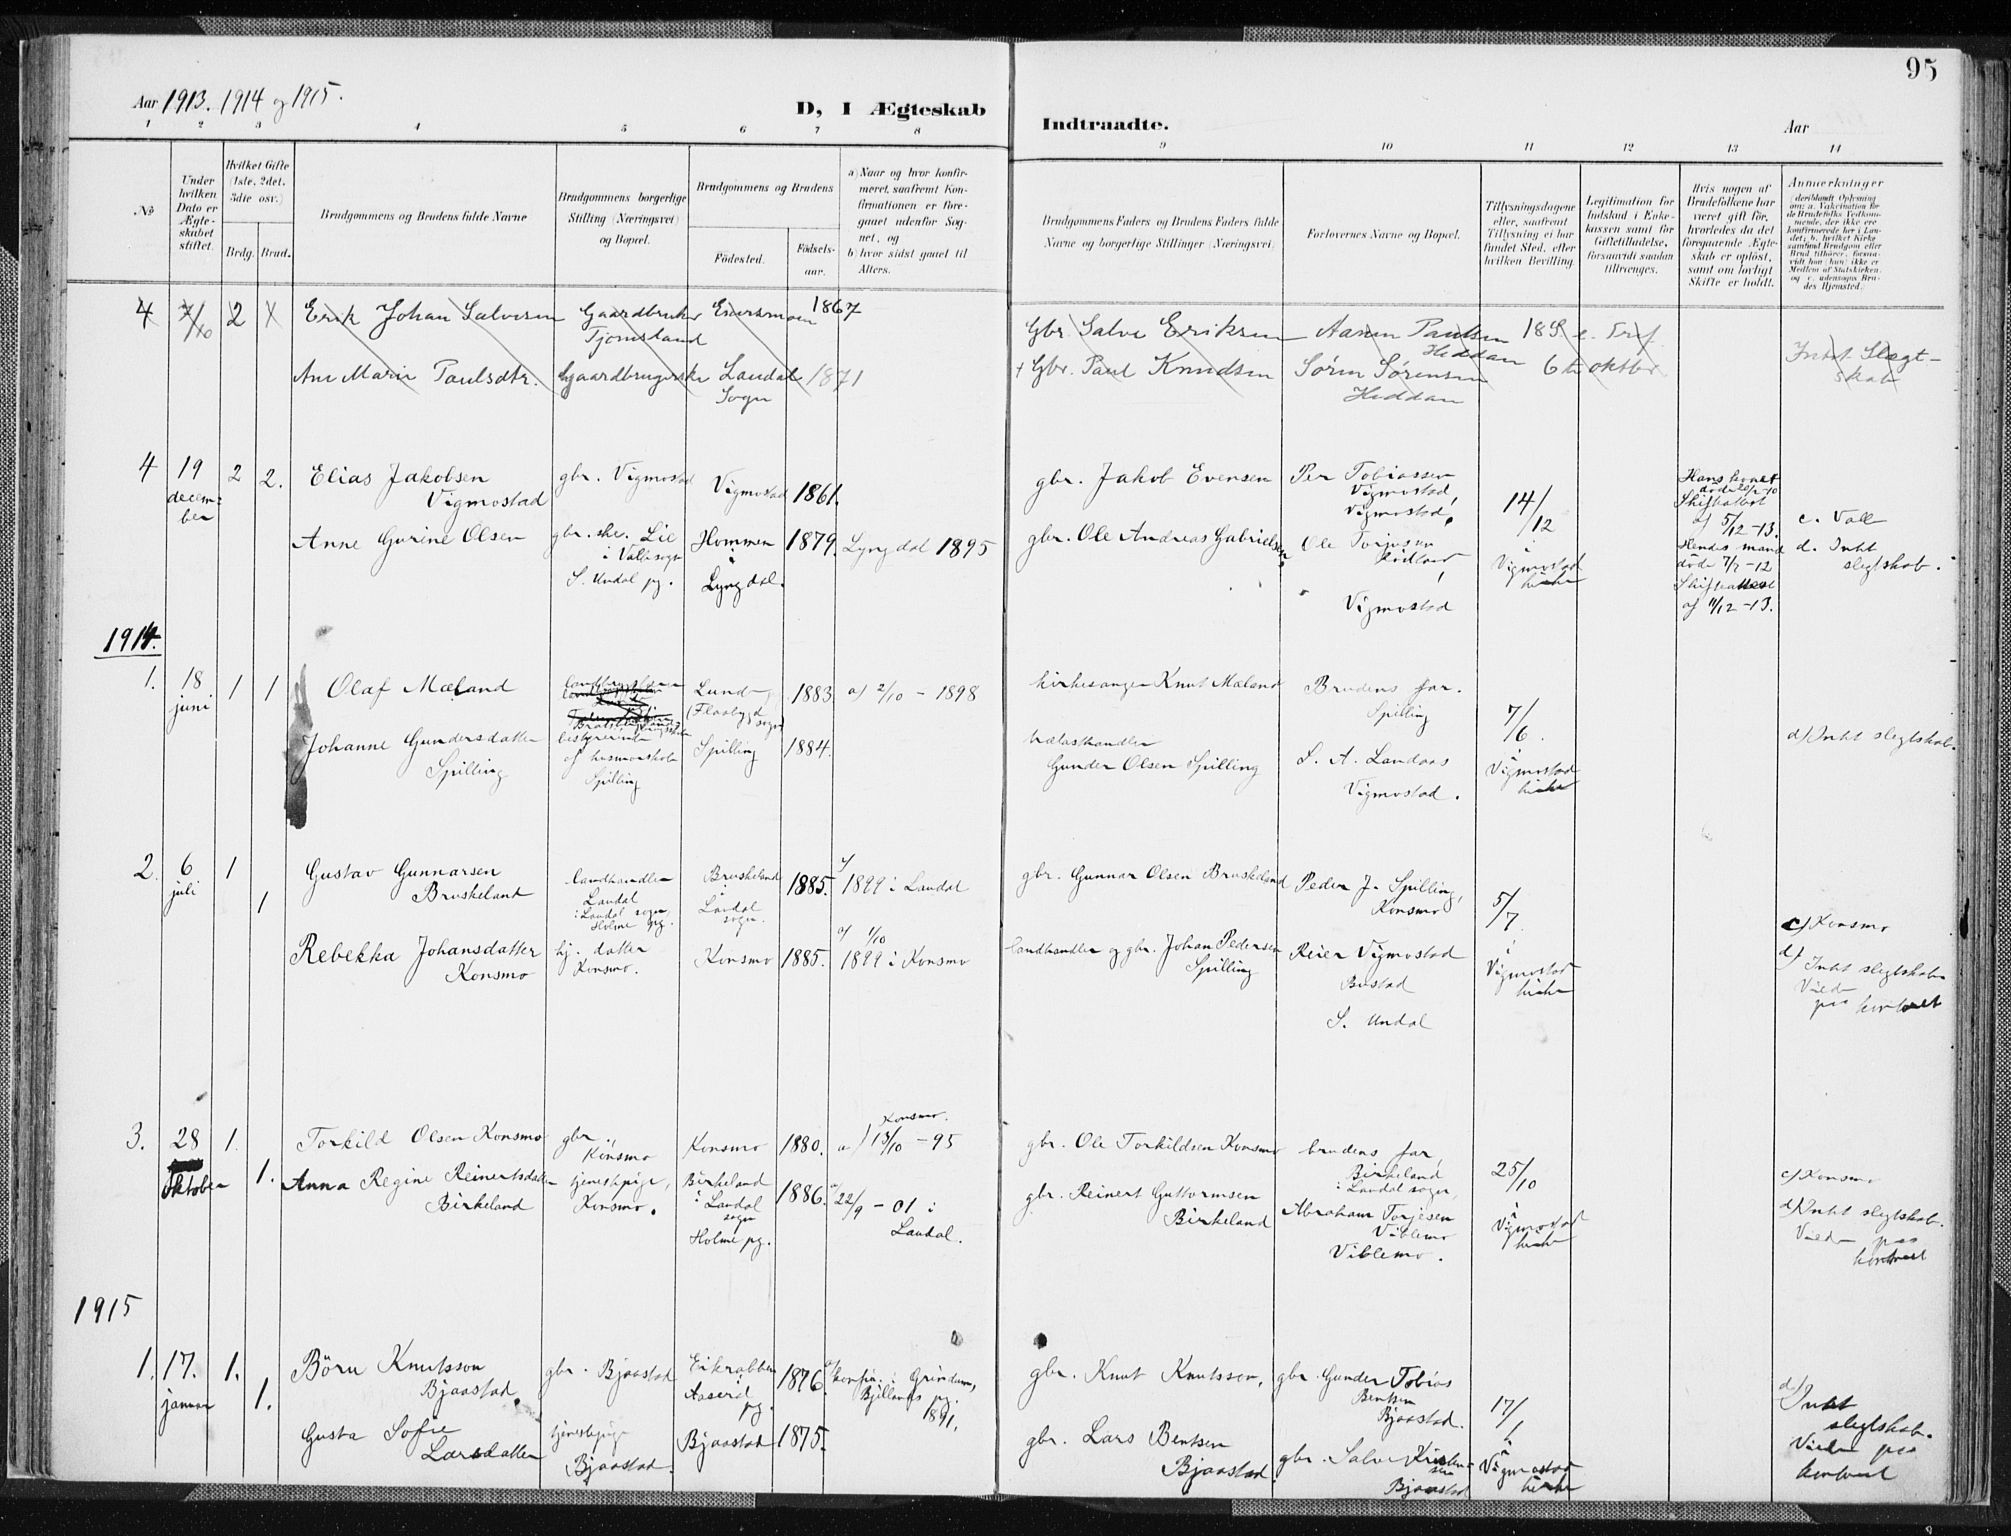 95
Aar 1913. 1914 og 1915.
D, I Ægteskab Indtraadte.
Aar
1 2 3 4 5 6 7 8 9 10 11 12 13 14
No
Under hvilken Dato er Ægteskabet stiftet.
Hvilket Gifte (1ste, 2det, 3die osv.)
Brdg. Brud.
Brudgommens og Brudens fulde Navne
Brudgommens borgerlige Stilling (Næringsvei) og Bopæl.
Brudgommens og Brudens
Födested.
Födsels-aar.
a) Naar og hvor konfirmeret, saafremt Konfirmationen er foregaaet udenfor Sognet, og
b) hvor sidst gaaet til Alters.
Brudgommens Faders og Brudens Faders fulde Navne og borgerlige Stillinger (Næringsvei)
Forlovernes Navne og Bopæl.
Tillysningsdagene eller, saafremt Tillysning ei har fundet Sted, efter hvilken Bevilling
Legitimation for Indskud i Enkekassen samt for Giftetilladelse, forsaavidt saadan tiltrænges.
Hvis nogen af Brudefolkene har været gift för, hvorledes da det foregaaende Ægteskab er oplöst, samt om lovligt Skifte er holdt.
Anmerkninger
4 7/10 2
Erik Johan Salvesen
Gaardbruker
Tjomsland
1867
Gbr. Salve Eriksen
Aanen Paulsen
Heddan
Ane Marie Paulsdtr.
Gaardbrugerske
Laudal
Sogn
1871
+ Gbr. Paul Knudsen
Sørin Sørensen
Heddan
6te oktbr
Intet Slægt-
skab
4 19 december 2 2.
Elias Jakobsen
Vigmostad
gbr. Vigmostad
Vigmostad
1861.
gbr. Jakob Evensen
Per Tobiassen
Vigmostad,
Vigmostad.
14/12
i
Vigmostad
kirke
Hans kone
Skifteattest
af 5/12-13.
Hendes mand
döde 7/7-12
Skifteattest
af 11/12-13.
c. Valle
d. Intet
slegtskab.
Anne Gurine Olsen
gbr.ske. Lie
i Valle sogn
S. Undal pg.
Hommen
i
Lyngdal.
1879.
Lyngdal 1895
gbr. Ole Andreas Gabrielsen
Ole Torjusen
Vigmostad
1914.
1. 18 juni 1 1
Olaf Mæland
Lunde
(Flaabygd
sogn)
1883
a) 2/10 - 1898
kirkesanger Knut Mæland
Brudens far.
Spilling
7/6.
i
Vigmostad
kirke
d) Intet slegtskab.
Johanne Gundersdatter
Spilling
bestyrerinde
af husmorskole
Spilling
Spilling
1884.
trælasthandler
Gunder Olsen Spilling
S. A. Landaas
Vigmostad.
2. 6 juli 1
1
Gustav Gunnarsen
Bruskeland
landhandler
Laudal
i Laudal sogn
Holme pg.
Bruskeland
i
Laudal
sogn.
1885.
a/
1899 i Laudal
gbr. Gunnar Olsen Bruskeland
Peder J. Spilling,
Konsmo
5/7
i
Vigmostad
kirke
c) Konsmo
d)
Intet slegtskab
Viede
paa kontoret
Rebekka Johansdatter
Konsmo
hj. datter
Konsmo.
Konsmo
1885.
a/ 1/10
1899 i Konsmo
landhandler og gbr. Johan Pedersen
Spilling
Reier Vigmostad
Bustad
S. Undal
3. 28 oktober 1.
1.
Torkild Olsen Konsmo
gbr.
Konsmo
Konsmo
1880.
Konsmo.
a) 13/10 - 95
gbr. Ole Torkildsen Konsmo
brudens far,
Birkeland
i Laudal sogn,
25/10
i
Vigmostad
kirke
c) Konsmo
d) Intet slegtskab.
Viede paa
kontoret
Anna Regine Reinertsdatter
Birkeland
tjenestepige,
Konsmo.
Birkeland
i Laudal
sogn
Holme pg.
1886.
a/ 22/9 - 01 i
Laudal.
gbr. Reinert Guttormsen
Birkeland
Abraham Torjesen
Viblemo
Viblemo.
1915
1. 17. januar 1.
1.
Börn Knutsson
Bjaastad
gbr. Bjaastad
Aaserid
pg.
1876
a/ konfir. i Grindum,
Bjellands pg.
1891.
gbr. Knut Knutsson,
gbr. Gunder Tobias
Bentsen
Bjaastad.
17/1
i
Vigmostad
kirke
d) Intet
slegtskab.
Viede paa
kontoret
Gusta Sofie
Larsdatter
tjenestepige
Bjaastad.
Bjaastad
1875.
gbr. Lars Bentsen
Bjaastad
gbr. Salve
Bjaastad